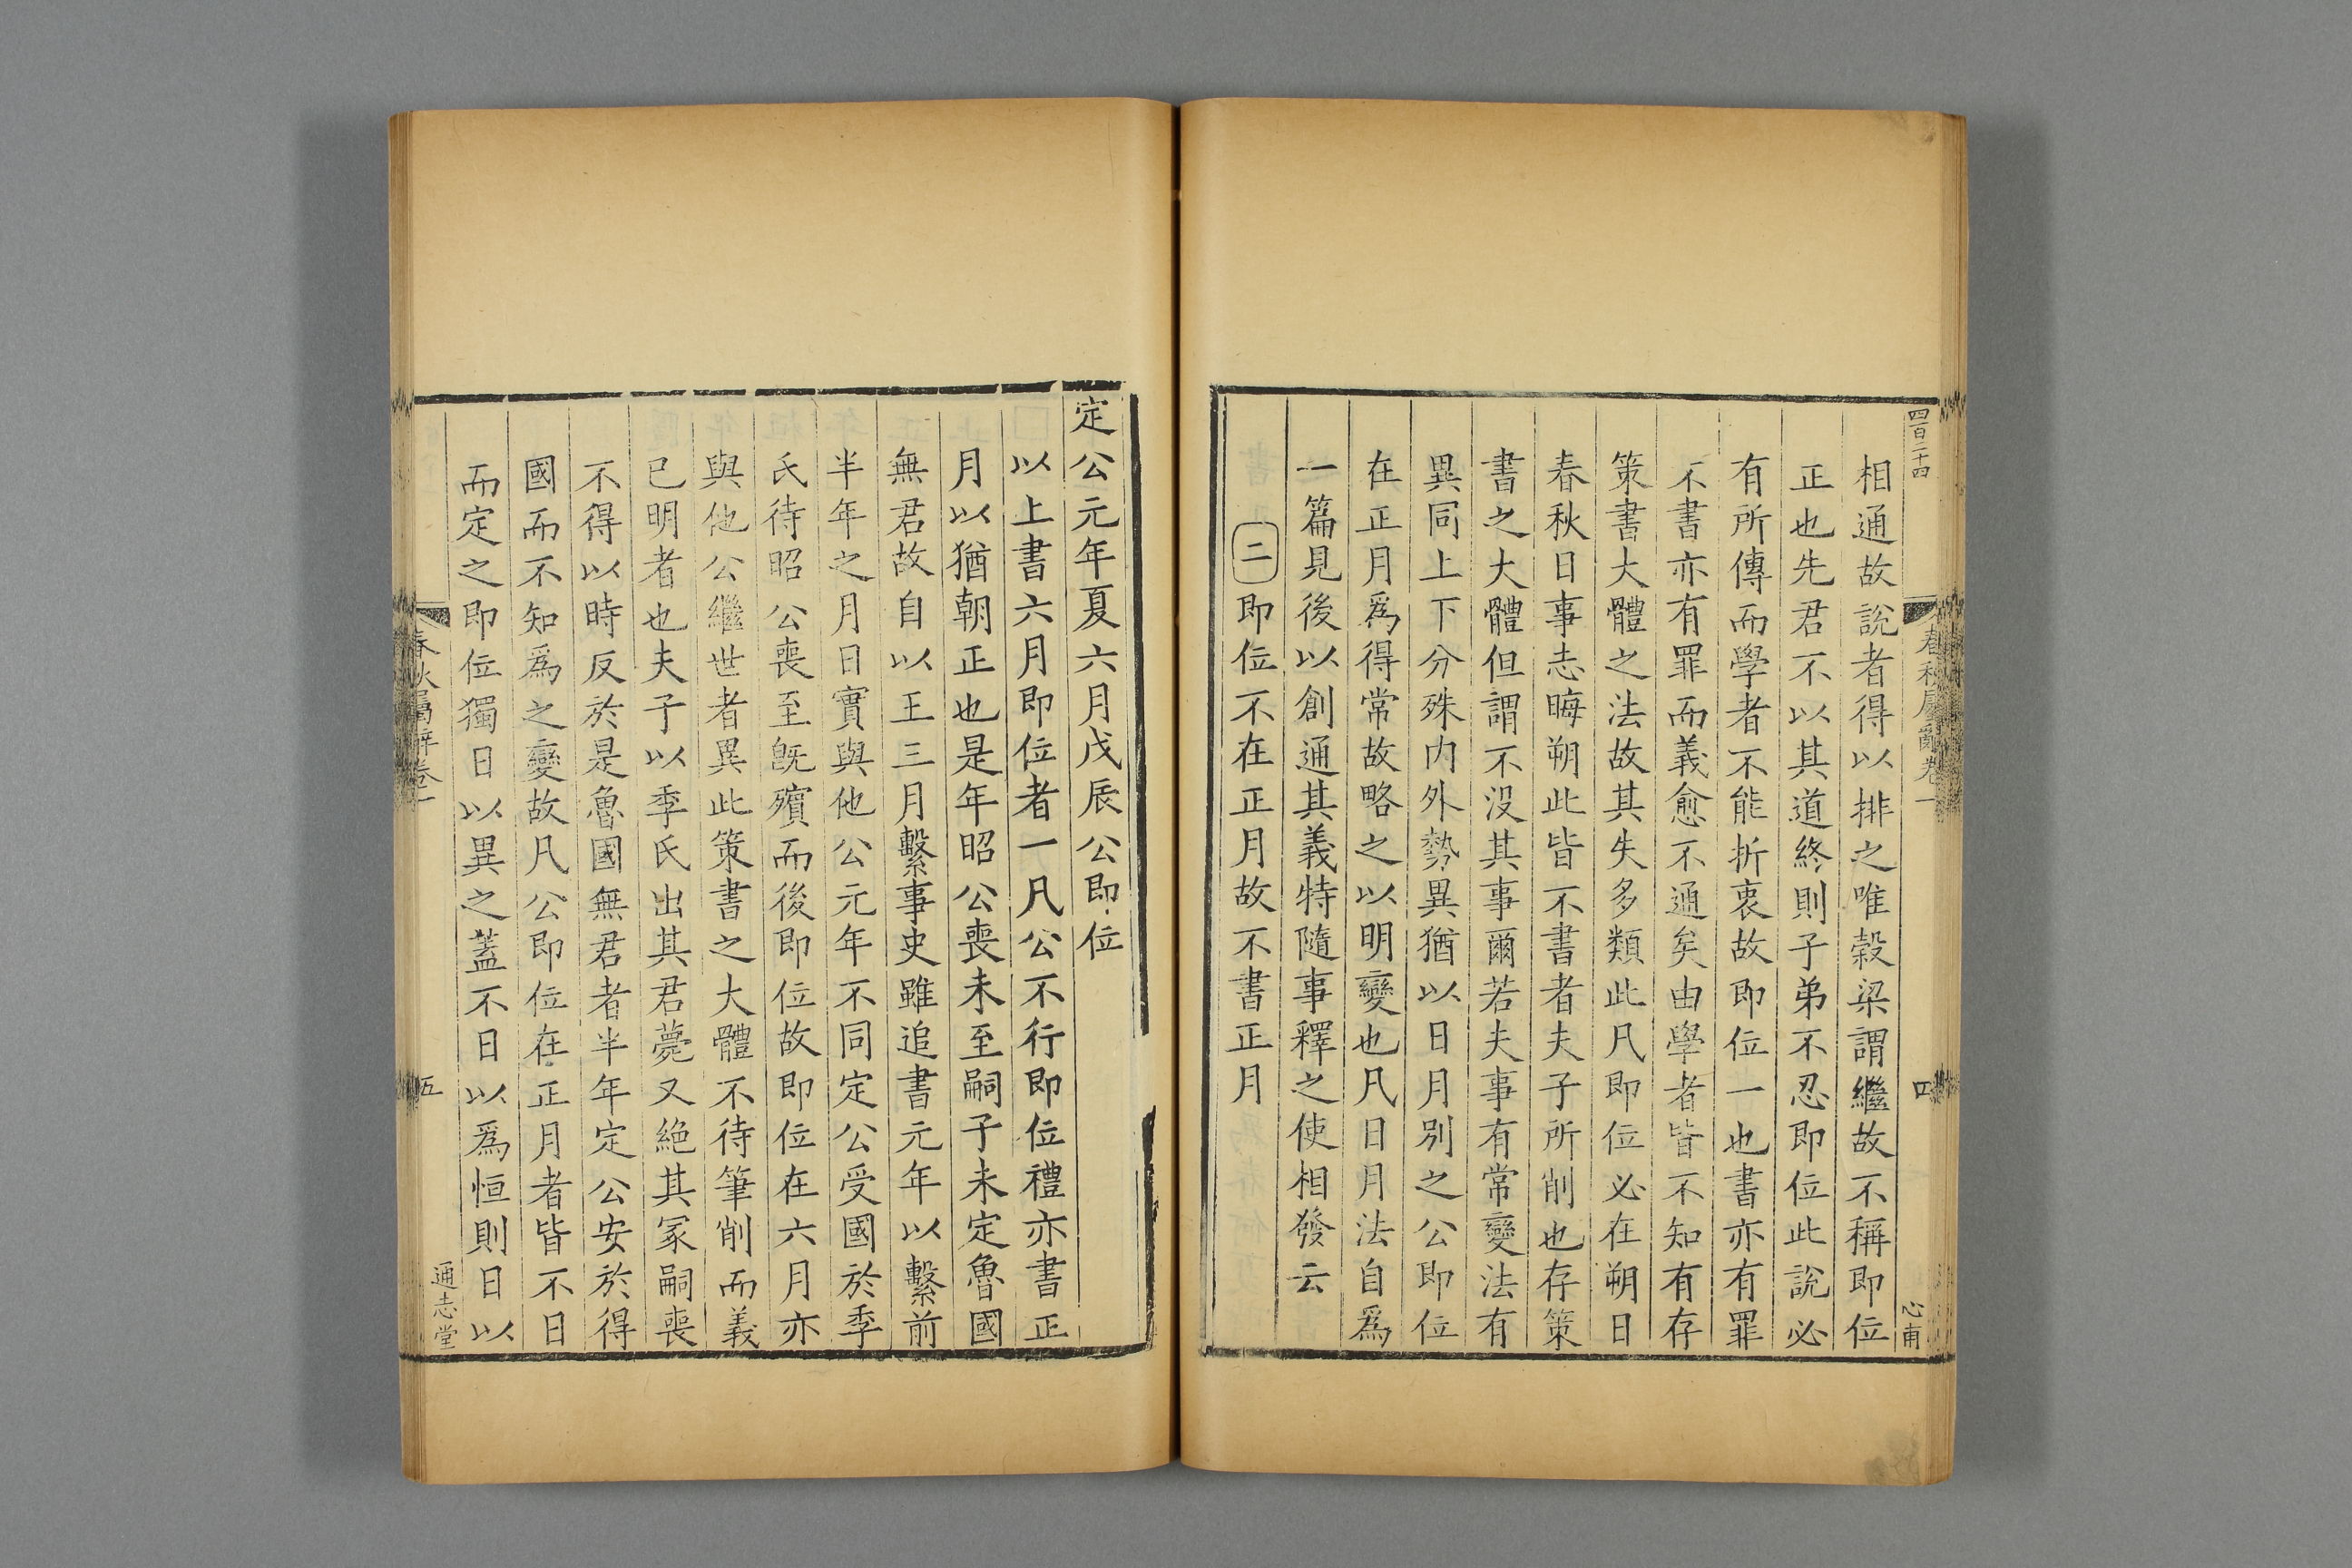 四百二十四
春秋屬辭卷一
四
心甫
相通故說者得以排之唯榖梁謂繼故不稱即位
正也先君不以其道終則子弟不忍即位此說必
有所傳而學者不能折衷故即位一也書亦有罪
不書亦有罪而義愈不通矣由學者皆不知有存
策書大體之法故其失多類此凡即位必在朔日
春秋日事志晦朔此皆不書者夫子所削也存策
書之大體但謂不没其事爾若夫事有常變法有
異同上下分殊内外勢異猶以日月別之公即位
在正月爲得常故略之以明變也凡日月法自爲
一篇見後以創通其義特隨事釋之使相發云
二即位不在正月故不書正月
定公元年夏六月戊辰公即位
以上書六月即位者一凡公不行即位禮亦書正
月以猶朝正也是年昭公喪未至嗣子未定魯國
無君故自以王三月繫事史雖追書元年以繫前
半年之月日實與他公元年不同定公受國於季
氏待昭公喪至旣殯而後即位故即位在六月亦
與他公繼世者異此策書之大體不待筆削而義
已明者也夫子以季氏出其君薨又絶其冢嗣喪
不得以時反於是魯國無君者半年定公安於得
國而不知爲之變故凡公即位在正月者皆不日
而定之即位獨日以異之蓋不日以爲恒則日以
春秋屬辭卷一
五
通志堂